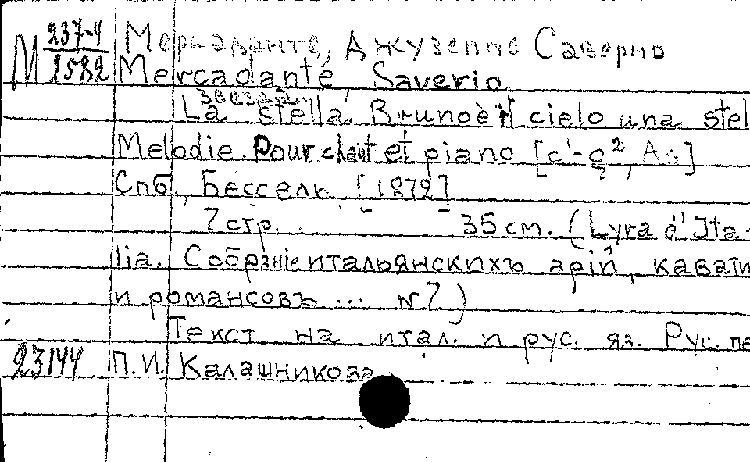 М 237-4 Меркаданте, Джузеппе Саверио
1582 Mercadante, Saverio
звезда
La stella. Bruno è il cielo una stel
Melodie. Pour chant et piano [c'-
Спб, Бессель [1872]
7 стр. 35 см. (Lyra d'Ita-
lia. Собраніе итальянскихъ арій, кавати
и романсовъ ... №7)
Текст на итал. и рус. яз. Рус. пе
23144 П.И. Калашникова